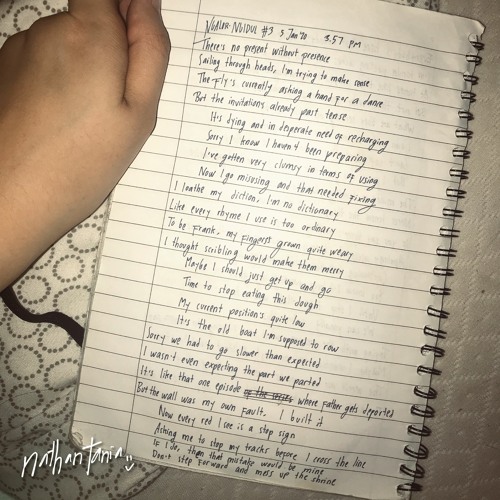 NGALOR-NGIDUL #3 3 Jan '20 3.57 PM
There's no present without presence
Sailing through heads, I'm trying to make sense
The Fly's currently asking a hand for a dance
But the invitations already past tense
It's dying and in desperate need of recharging
Sorry I know I haven't been preparing
I've gotten very clumsy in terms of using
Now I go misusing and that needed fixing
I loathe my diction, I'm no dictionary
Like every rhyme I use is too ordinary
To be Frank, my fingers grown quite weary
I thought scribbling would make them merry
Maybe I should just get up and go
Time to stop eating this dough
My current position's quite low
It's the old boat I'm supposed to row
Sorry we had to go slower than expected
I wasn't even expecting the part we parted
It's like that one episode of the series where Father gets deported
But the wall was my own fault. I built it
Now every red I see is a stop sign
Asking me to stop my tracks before I cross the line
If I do, then that mistake would be mine
Don't step forward and mess up the shrine
nathantania